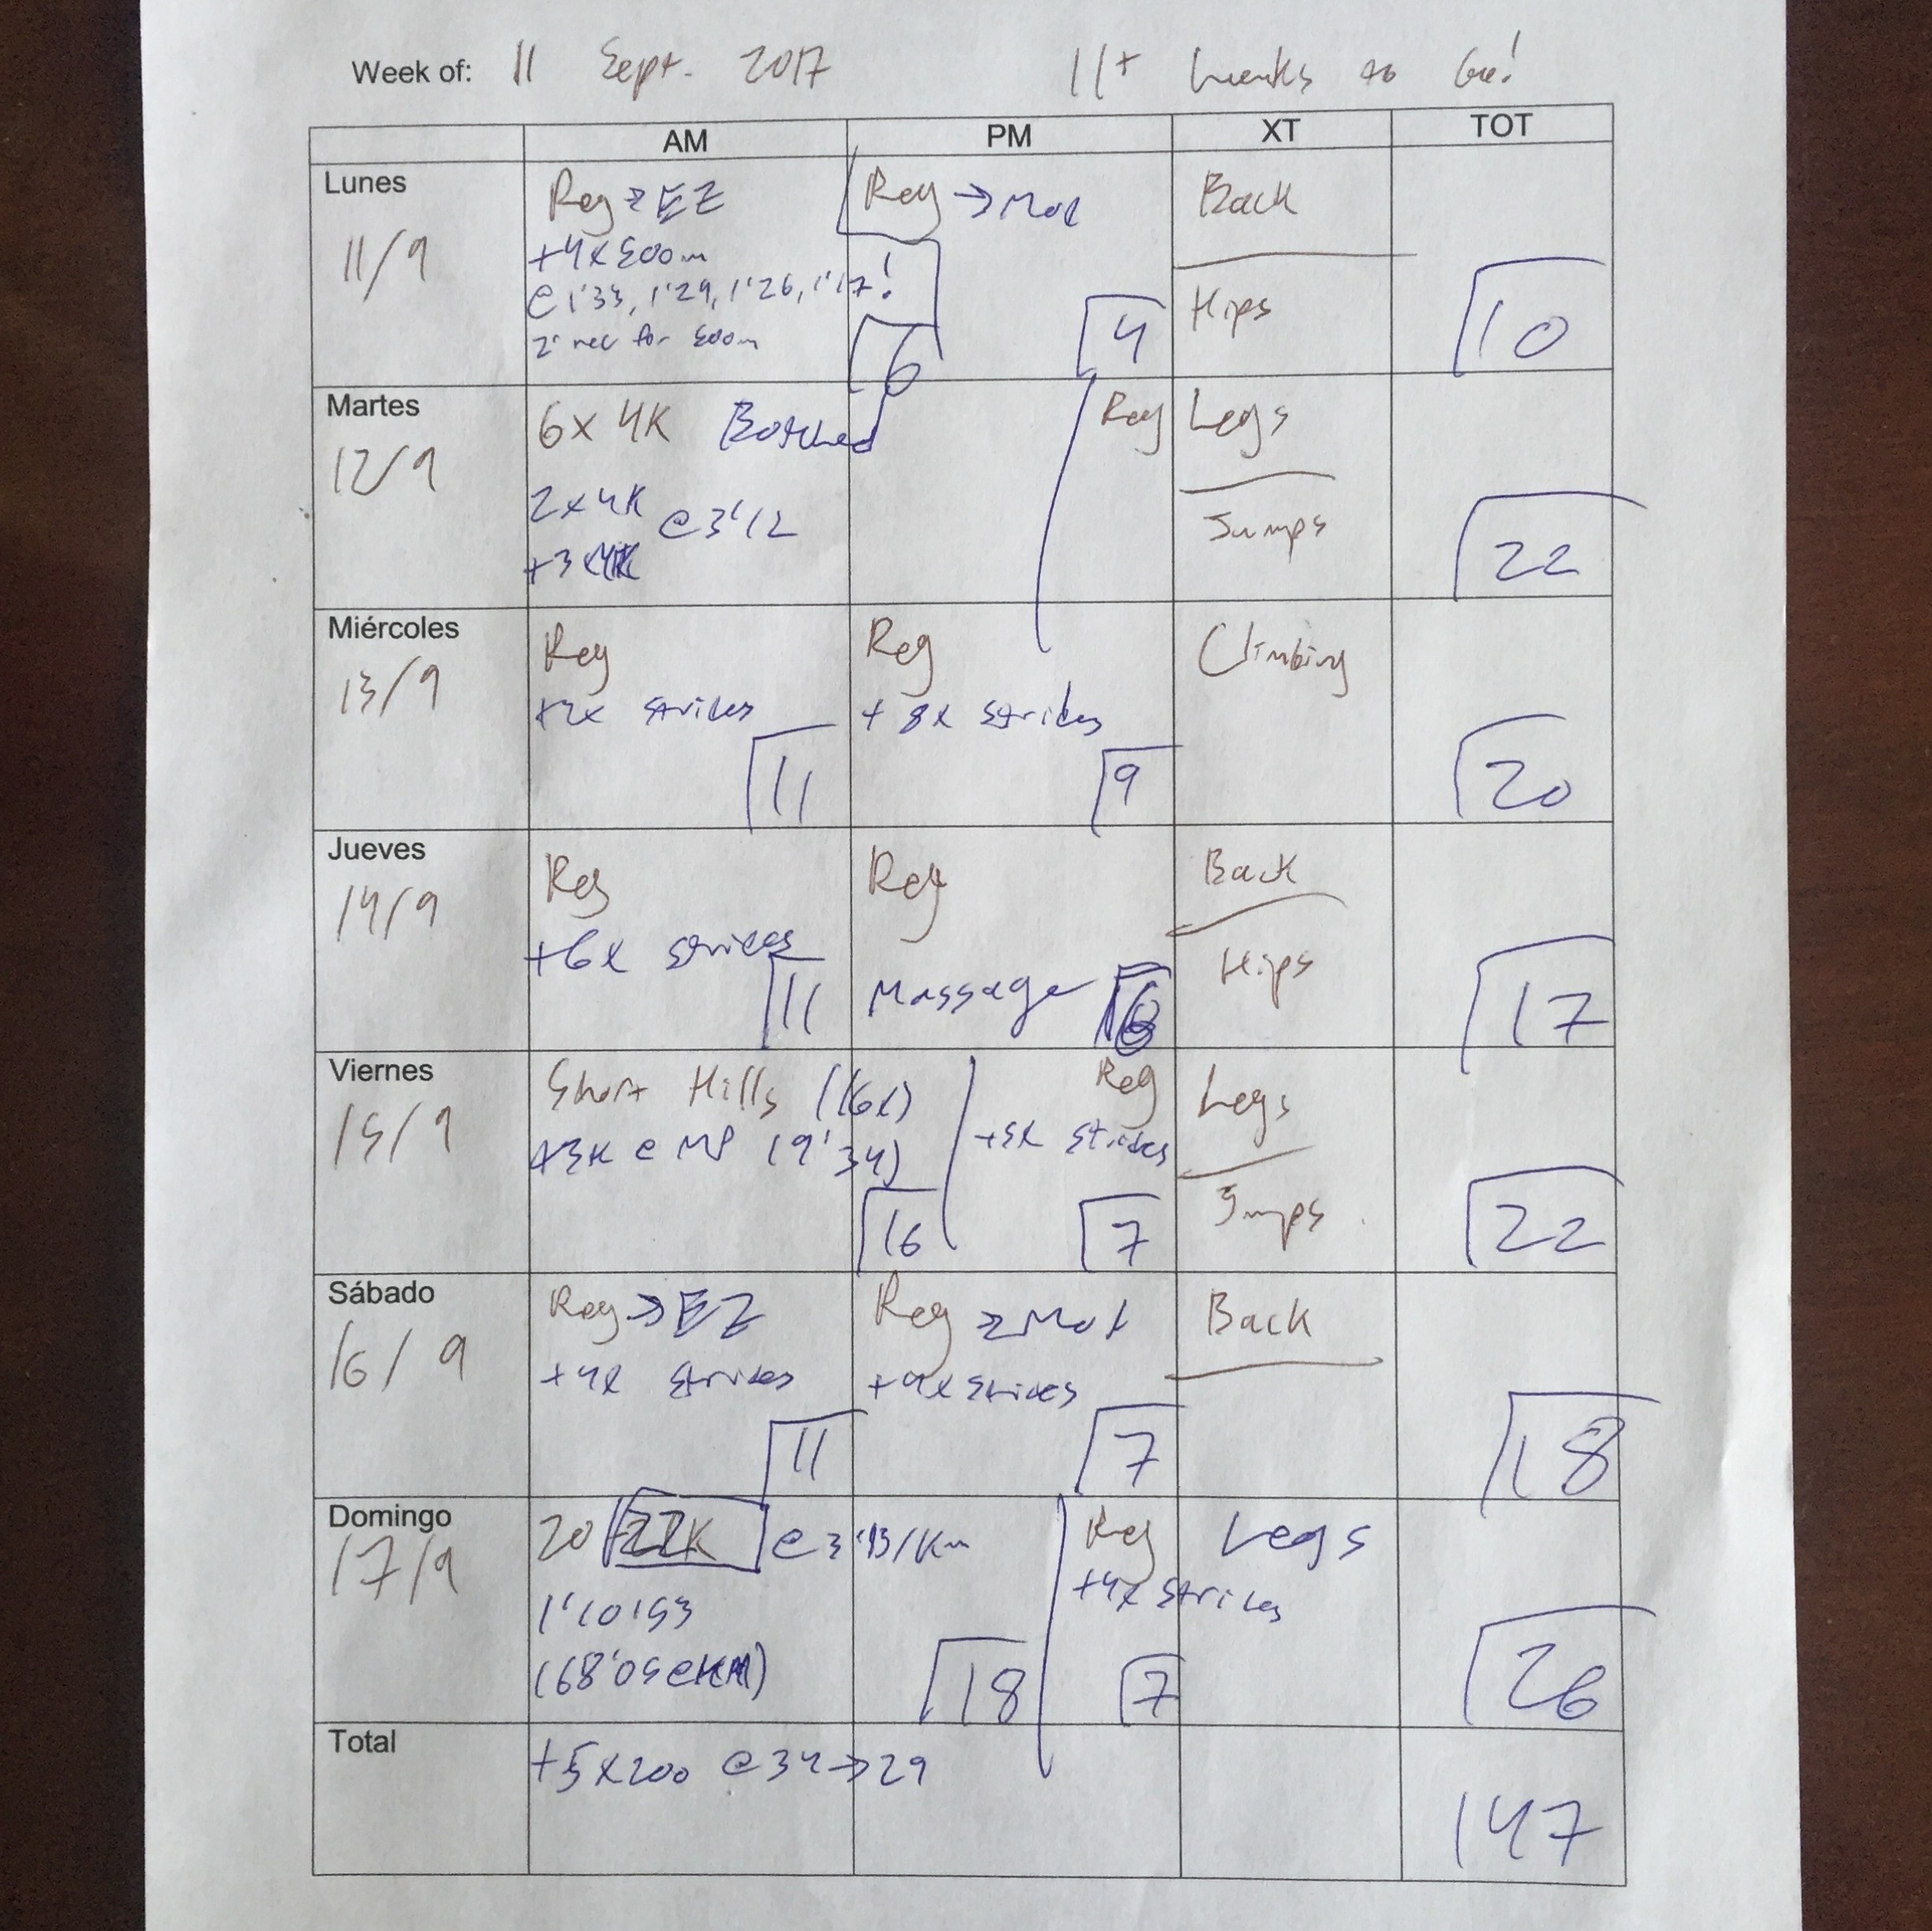 Week of: 11 Sept. 2017 11+ weeks to Go!
AM PM XT TOT
Lunes
11/9
Reg → EZ
+4x 500m
@ 1'33, 1'29, 1'26, 1'17!
2' rec for 500m
6
Reg →
4
Back
Hips
10
Martes
12/9
6x 4K Botched
2x4K @ 3'12
+3x
Reg
Legs
Jumps
22
Miércoles
13/9
Reg
+2x strides
11
Reg
+ 8x strides
9
Climbing
20
Jueves
14/9
Reg
+6x strides
11
Reg
Massage 6
Back
Hips
17
Viernes
15/9
Short Hills (16x)
+3K @ MP (9'34)
16
Reg
+5x strides
7
Legs
Jumps
22
Sábado
16/9
Reg → EZ
+4x strides
11
Reg →
+4x strides
7
Back
18
Domingo
17/9
20 22K @ 3'13/Km
1'10'53
(68'05 @ )
18
Reg
+4x strides
7
Legs
26
Total
+5x200 @ 34 → 29
147